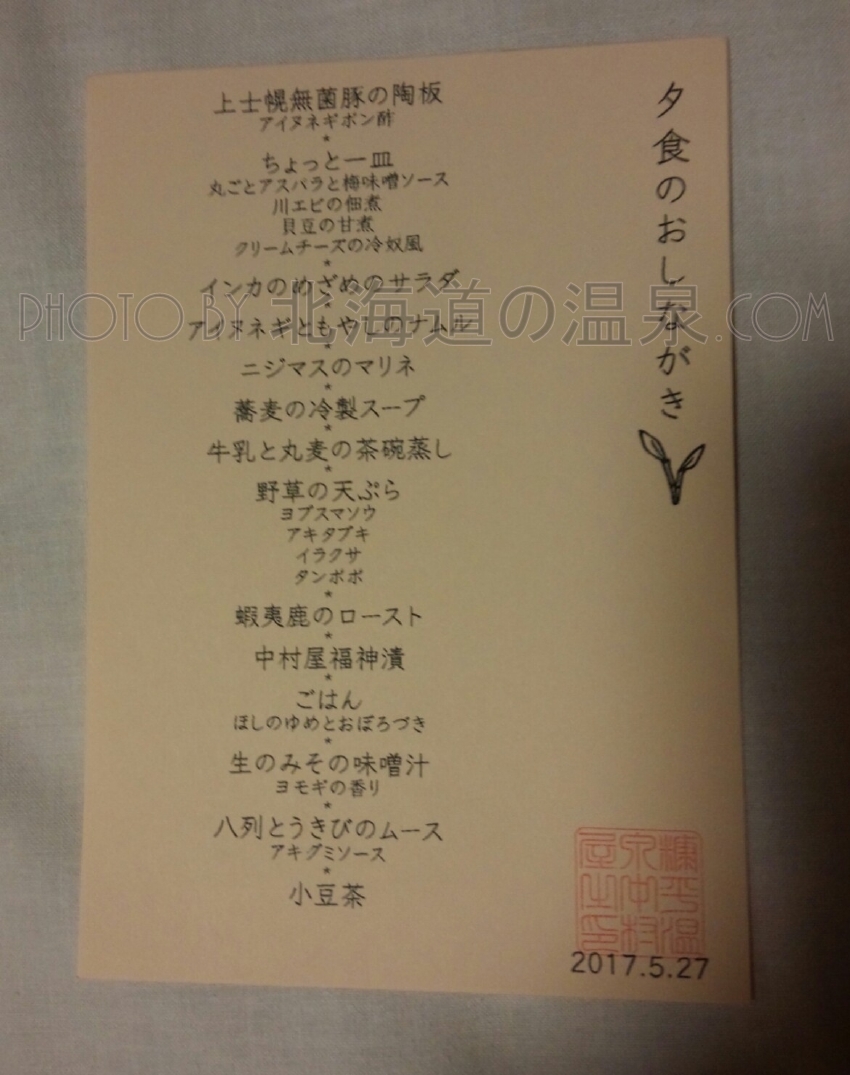 夕食のおしながき
上士幌無菌豚の陶板
アイヌネギポン酢
*
ちょっと一皿
丸ごとアスパラと梅味噌ソース
川エビの佃煮
貝豆の甘煮
クリームチーズの冷奴風
*
インカのめざめのサラダ
*
アイヌネギともやしのナムル
*
ニジマスのマリネ
*
蕎麦の冷製スープ
*
牛乳と丸麦の茶碗蒸し
*
野草の天ぷら
ヨブスマソウ
アキタブキ
イラクサ
タンポポ
*
蝦夷鹿のロースト
*
中村屋福神漬
*
ごはん
ほしのゆめとおぼろづき
*
生のみその味噌汁
ヨモギの香り
*
八列とうきびのムース
アキグミソース
*
小豆茶
糠平温
泉中村
屋之印
2017.5.27
PHOTO BY 北海道の温泉.COM